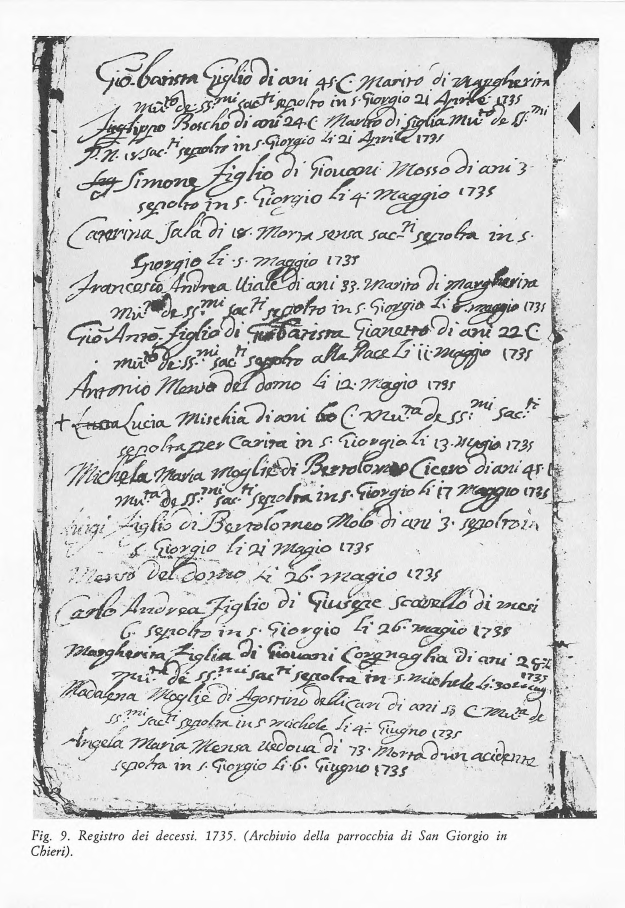 Gio batista Giglio di ani 45 C. Marito di Margherita
mu.to de ss.mi sac.ti sepolto in s. Giorgio 21 Aprile 1735
Boscho di ani 24 C Marito di Giglia mu.to de ss.mi
sac.ti sepolto in s. Giorgio li 21 Aprile 1735
Simone figlio di Giovani Mosso di ani 3
sepolto in s. Giorgio li 4. Maggio 1735
Caterina Sala di 18. Morta sensa sac.ti sepolta in s.
Giorgio li 5. maggio 1735
Francesco Andrea Viale di ani 33. Marito di Margherita
mu.to de ss.mi sac.ti sepolto in s. Giorgio li 8 maggio 1735
Gio Anto. figlio di Gio batista Gianetto di ani 22 C
mu.to de ss.mi sac.ti sepolto alla Pace li 11 Maggio 1735
Antonio Menso del domo li 12. Magio 1735
+ Lucia Mischia di ani 60 C. mu.ta de ss.mi sac.ti
sepolta per Carita in s. Giorgio li 13. Magio 1735
Michela Maria Moglie di Bertolomeo Cicero di ani 45.
mu.ta de ss.mi sac.ti sepolta in s. Giorgio li 17 Maggio 1735
Luigi figlio di Bertolomeo Molo di ani 3. sepolto in
s Giorgio li 21 Magio 1735
Menso del domo li 26. magio 1735
Carlo Andrea figlio di Giusepe Scavello di mesi
6. sepolto in s. Giorgio li 26. magio 1735
Margherita figlia di Giovani Corgnaglia di ani 28
mu.ta de ss.mi sac.ti sepolta in s. michele li. 30 1735
Madalena Moglie di Agostino delli Cani di ani 50 C mu.ta de
ss.mi sac.ti sepolta in s michele li 4. Giugno 1735
Angela Maria Mensa vedova di 73. Morta d'un acidente
sepolta in s. Giorgio li. 6. Giugno 1735
Fig. 9. Registro dei decessi. 1735. (Archivio della parrocchia di San Giorgio in
Chieri).